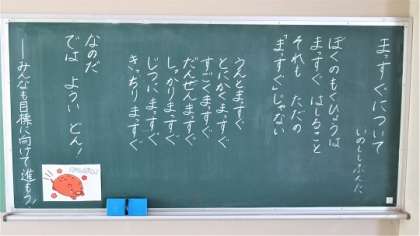 まっすぐについて
いのししぶんた
ぼくのもくひょうは
まっすぐ はしること
それも ただの
「まっすぐ」じゃない
うんとまっすぐ
とにかくまっすぐ
すごくまっすぐ
だんぜんまっすぐ
しっかりまっすぐ
じつにまっすぐ
きっちりまっすぐ
なのだ
では ようい どん!
―みんなも目標に向けて進もう!